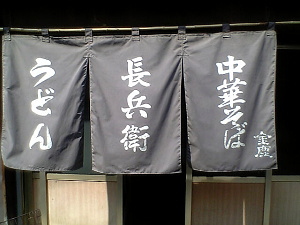 中華そば
金座
長兵衛
うどん